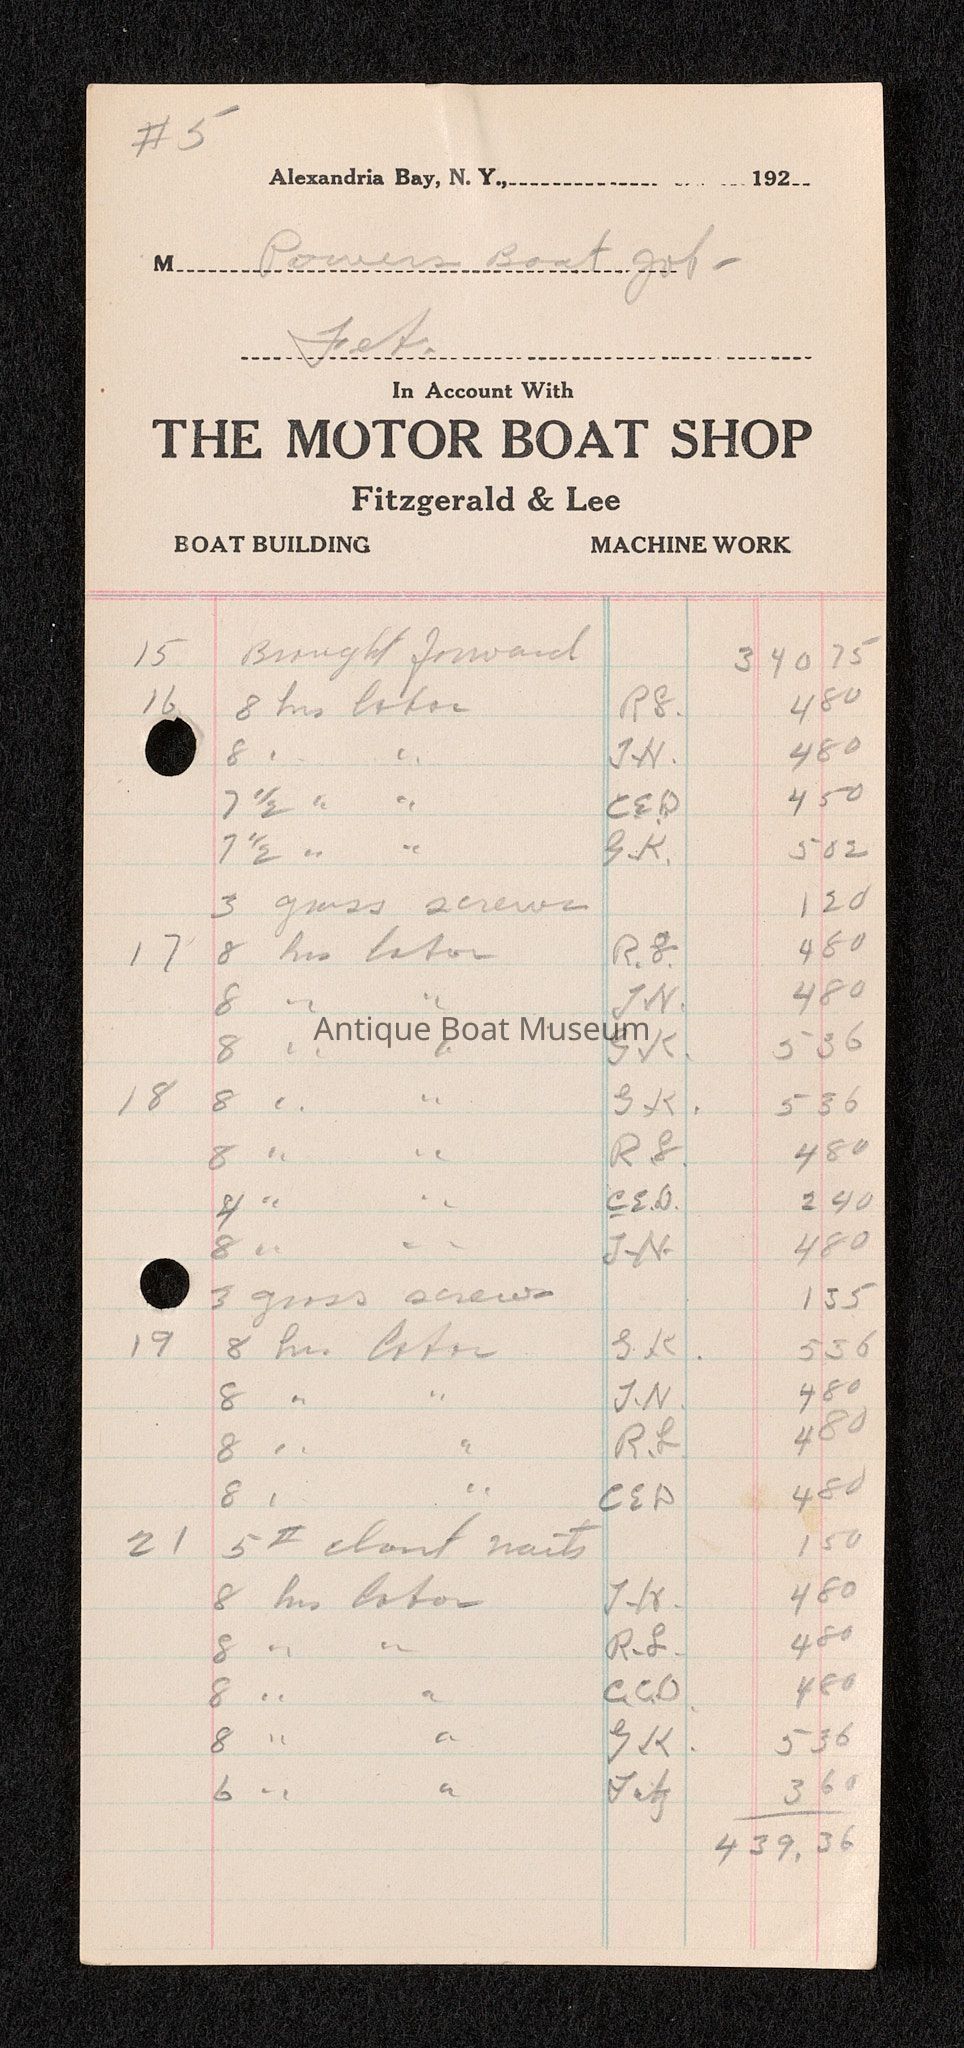 #5
Alexandria Bay, N. Y., 192
M Powers Boat Job -
Feb.
In Account With
THE MOTOR BOAT SHOP
Fitzgerald & Lee
BOAT BUILDING MACHINE WORK
15 Brought forward 340 75
16 8 hrs labor R.L. 4 80
8 " " J.N. 4 80
7 1/2 " " C.E.D 4 50
7 1/2 " " G.K. 5 02
3 gross screws 1 20
17 8 hrs labor R.L. 4 80
8 " " J.N. 4 80
8 " " G.K. 5 36
Antique Boat Museum
18 8 " " G.K. 5 36
8 " " R.L. 4 80
4 " " C.E.D. 2 40
8 " " J.N. 4 80
3 gross screws 1 35
19 8 hrs labor G.K. 5 36
8 " " J.N. 4 80
8 " " R.L 4 80
8 " " C E D 4 80
21 5# clout nails 1 50
8 hrs labor J.N. 4 80
8 " " R.L. 4 80
8 " " C.E.D. 4 80
8 " " G.K. 5 36
6 " " Fitz 3 60
439.36